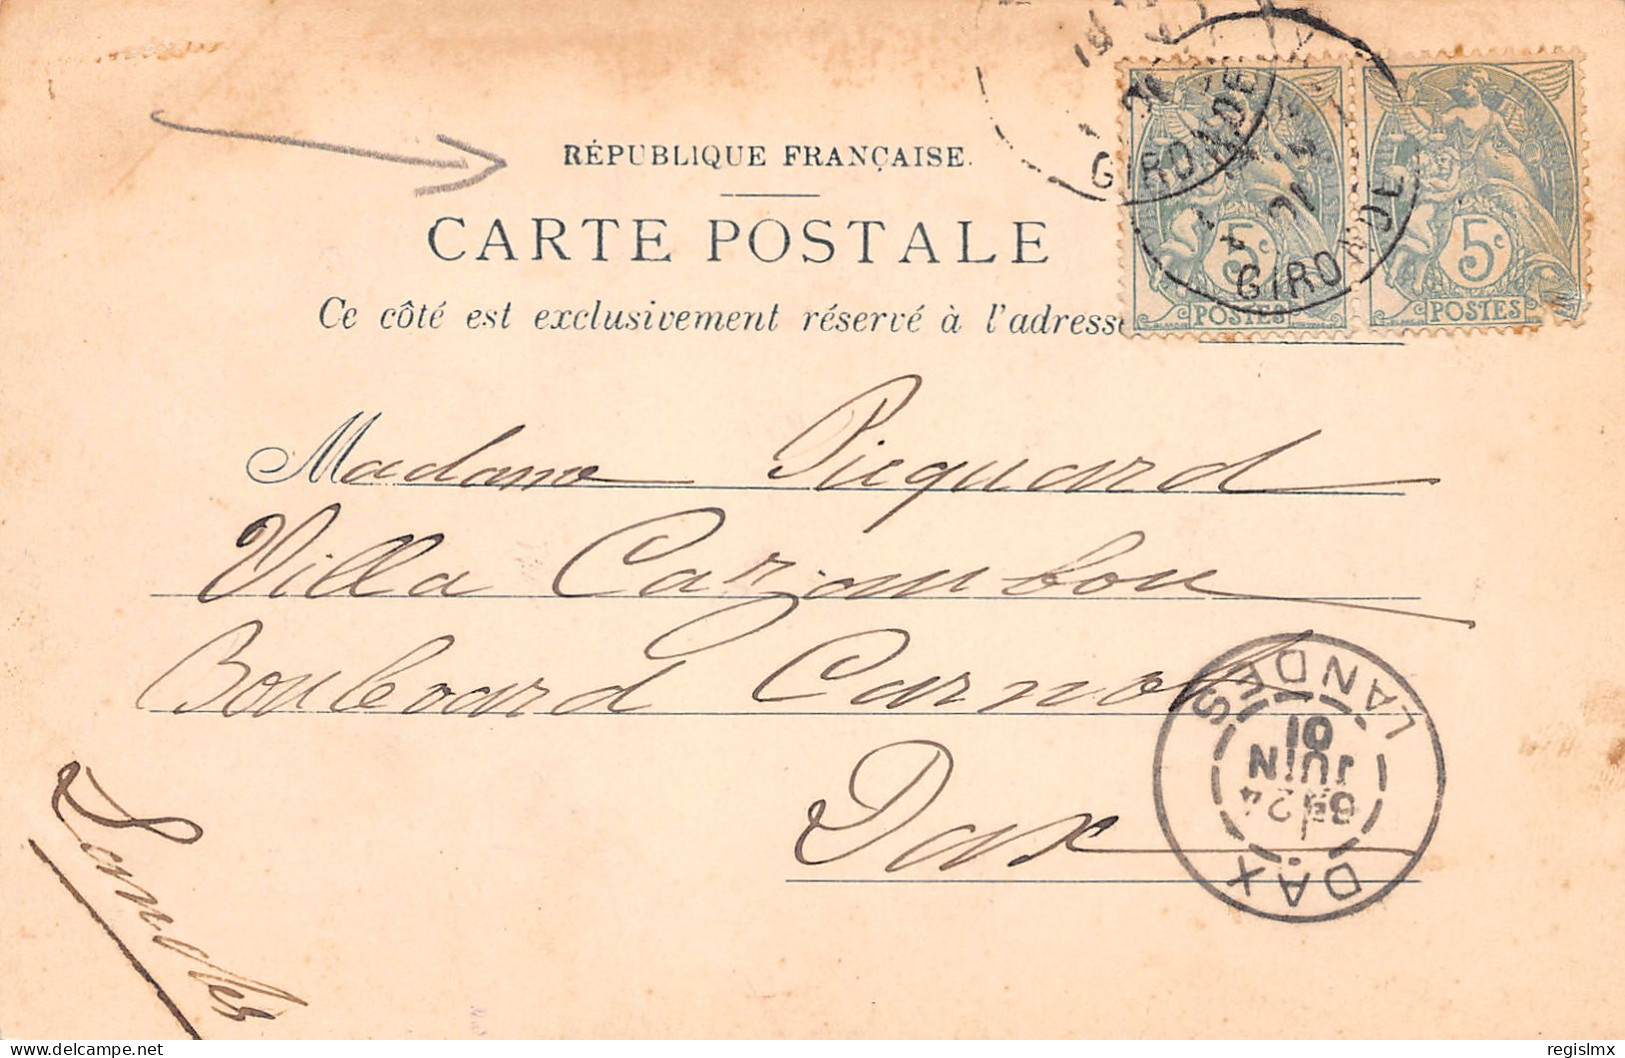 RÉPUBLIQUE FRANÇAISE.
CARTE POSTALE
Ce côté est exclusivement réservé à l'adresse
5c
POSTES
5c
POSTES
GIRONDE
GIRONDE
Madame Picquard
Villa Cazambon
Boulevard Carnot
Dax
Landes
DAX
24
JUIN
01
LANDES
regislmx